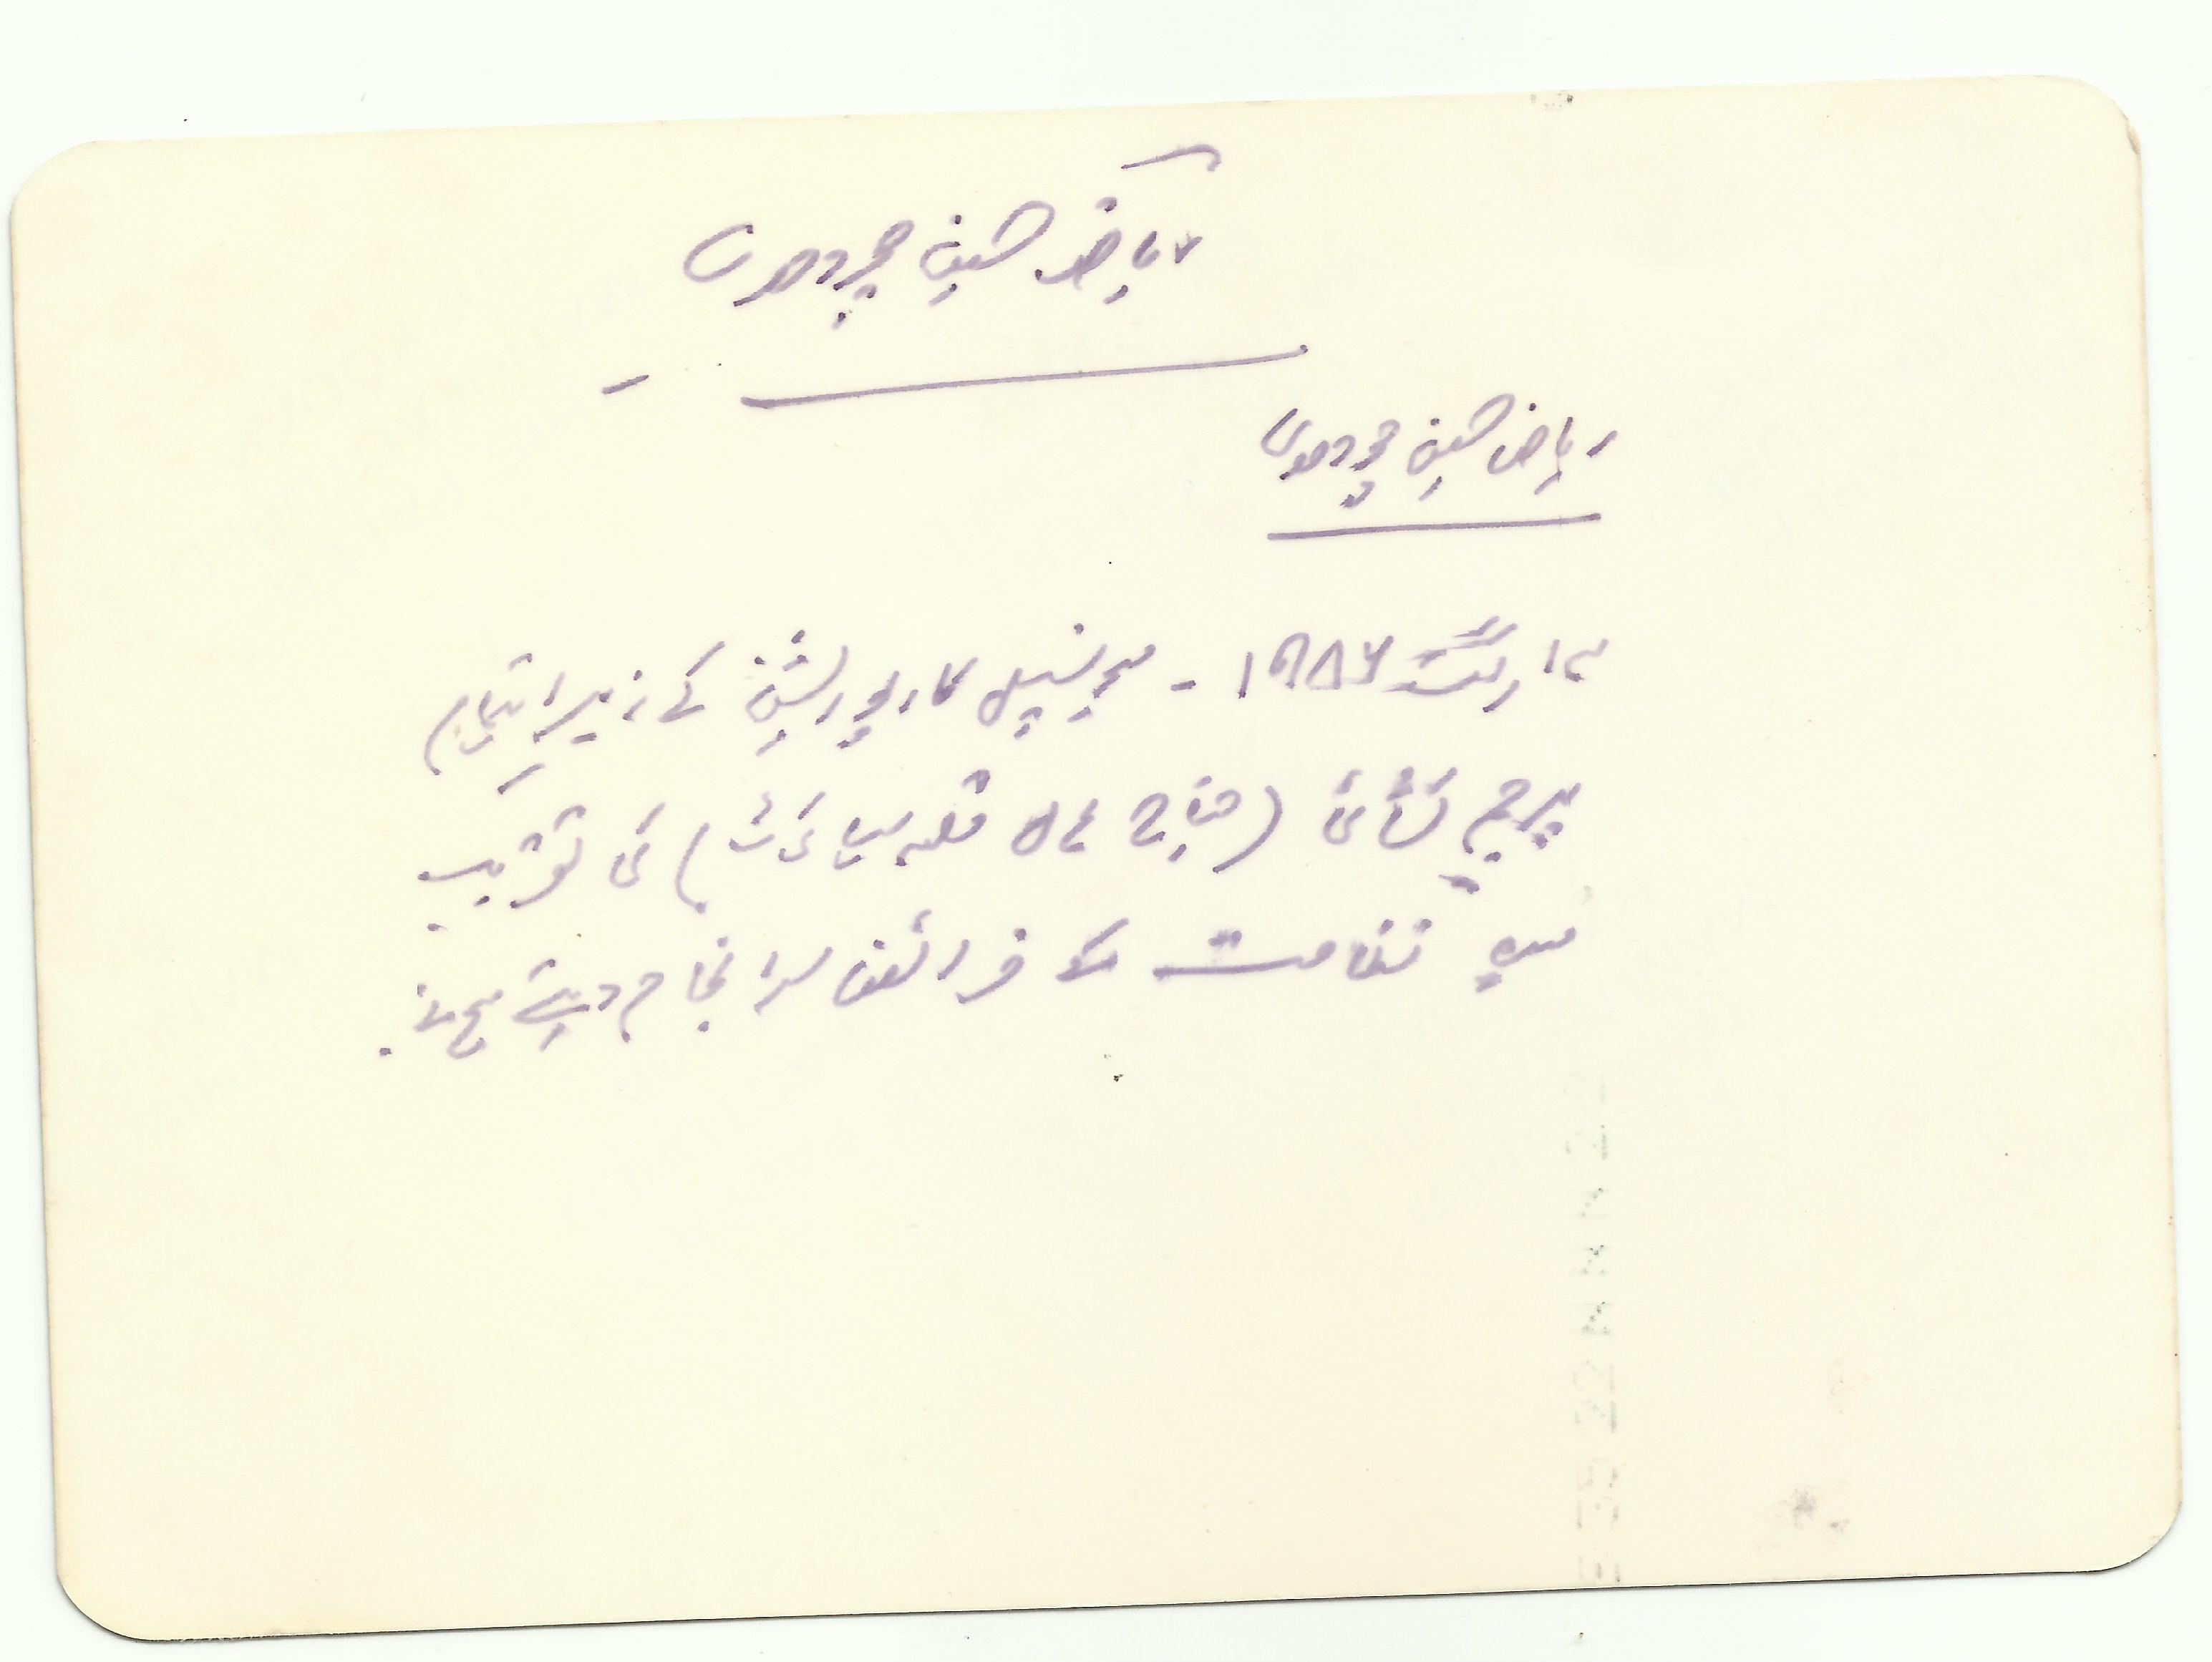 ریاض حسین چودھری
ریاض حسین چودھری
۱۴ اگست ۱۹۸۶ - میونسپل کارپوریشن کے زیر اہتمام
پرچم کشائی (جناح ہال قلعہ سیالکوٹ) کی تقریب
میں نظامت کے فرائض سرانجام دیتے ہوئے.